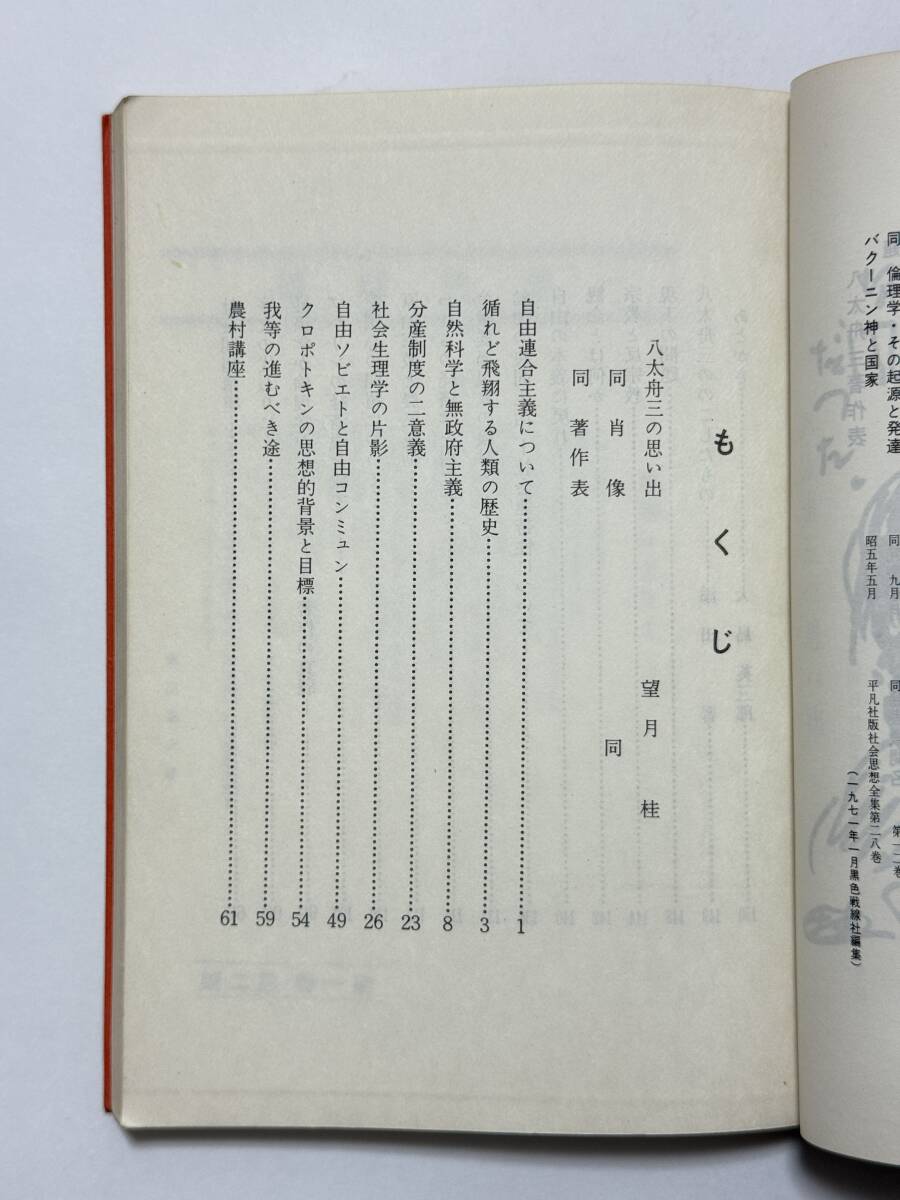 同 倫理学・その起源と発達 同 九月 同
バクーニン神と国家 昭五年五月 平凡社版社会思想全集第二八巻
(一九七一年一月黒色戦線社編集)
もくじ
八太舟三の思い出 望月桂
同 肖像 同
同 著作表
自由連合主義について 1
循れど飛翔する人類の歴史 3
自然科学と無政府主義 8
分産制度の二意義 23
社会生理学の片影 26
自由ソビエトと自由コンミュン 49
クロポトキンの思想的背景と目標 54
我等の進むべき途 59
農村講座 61